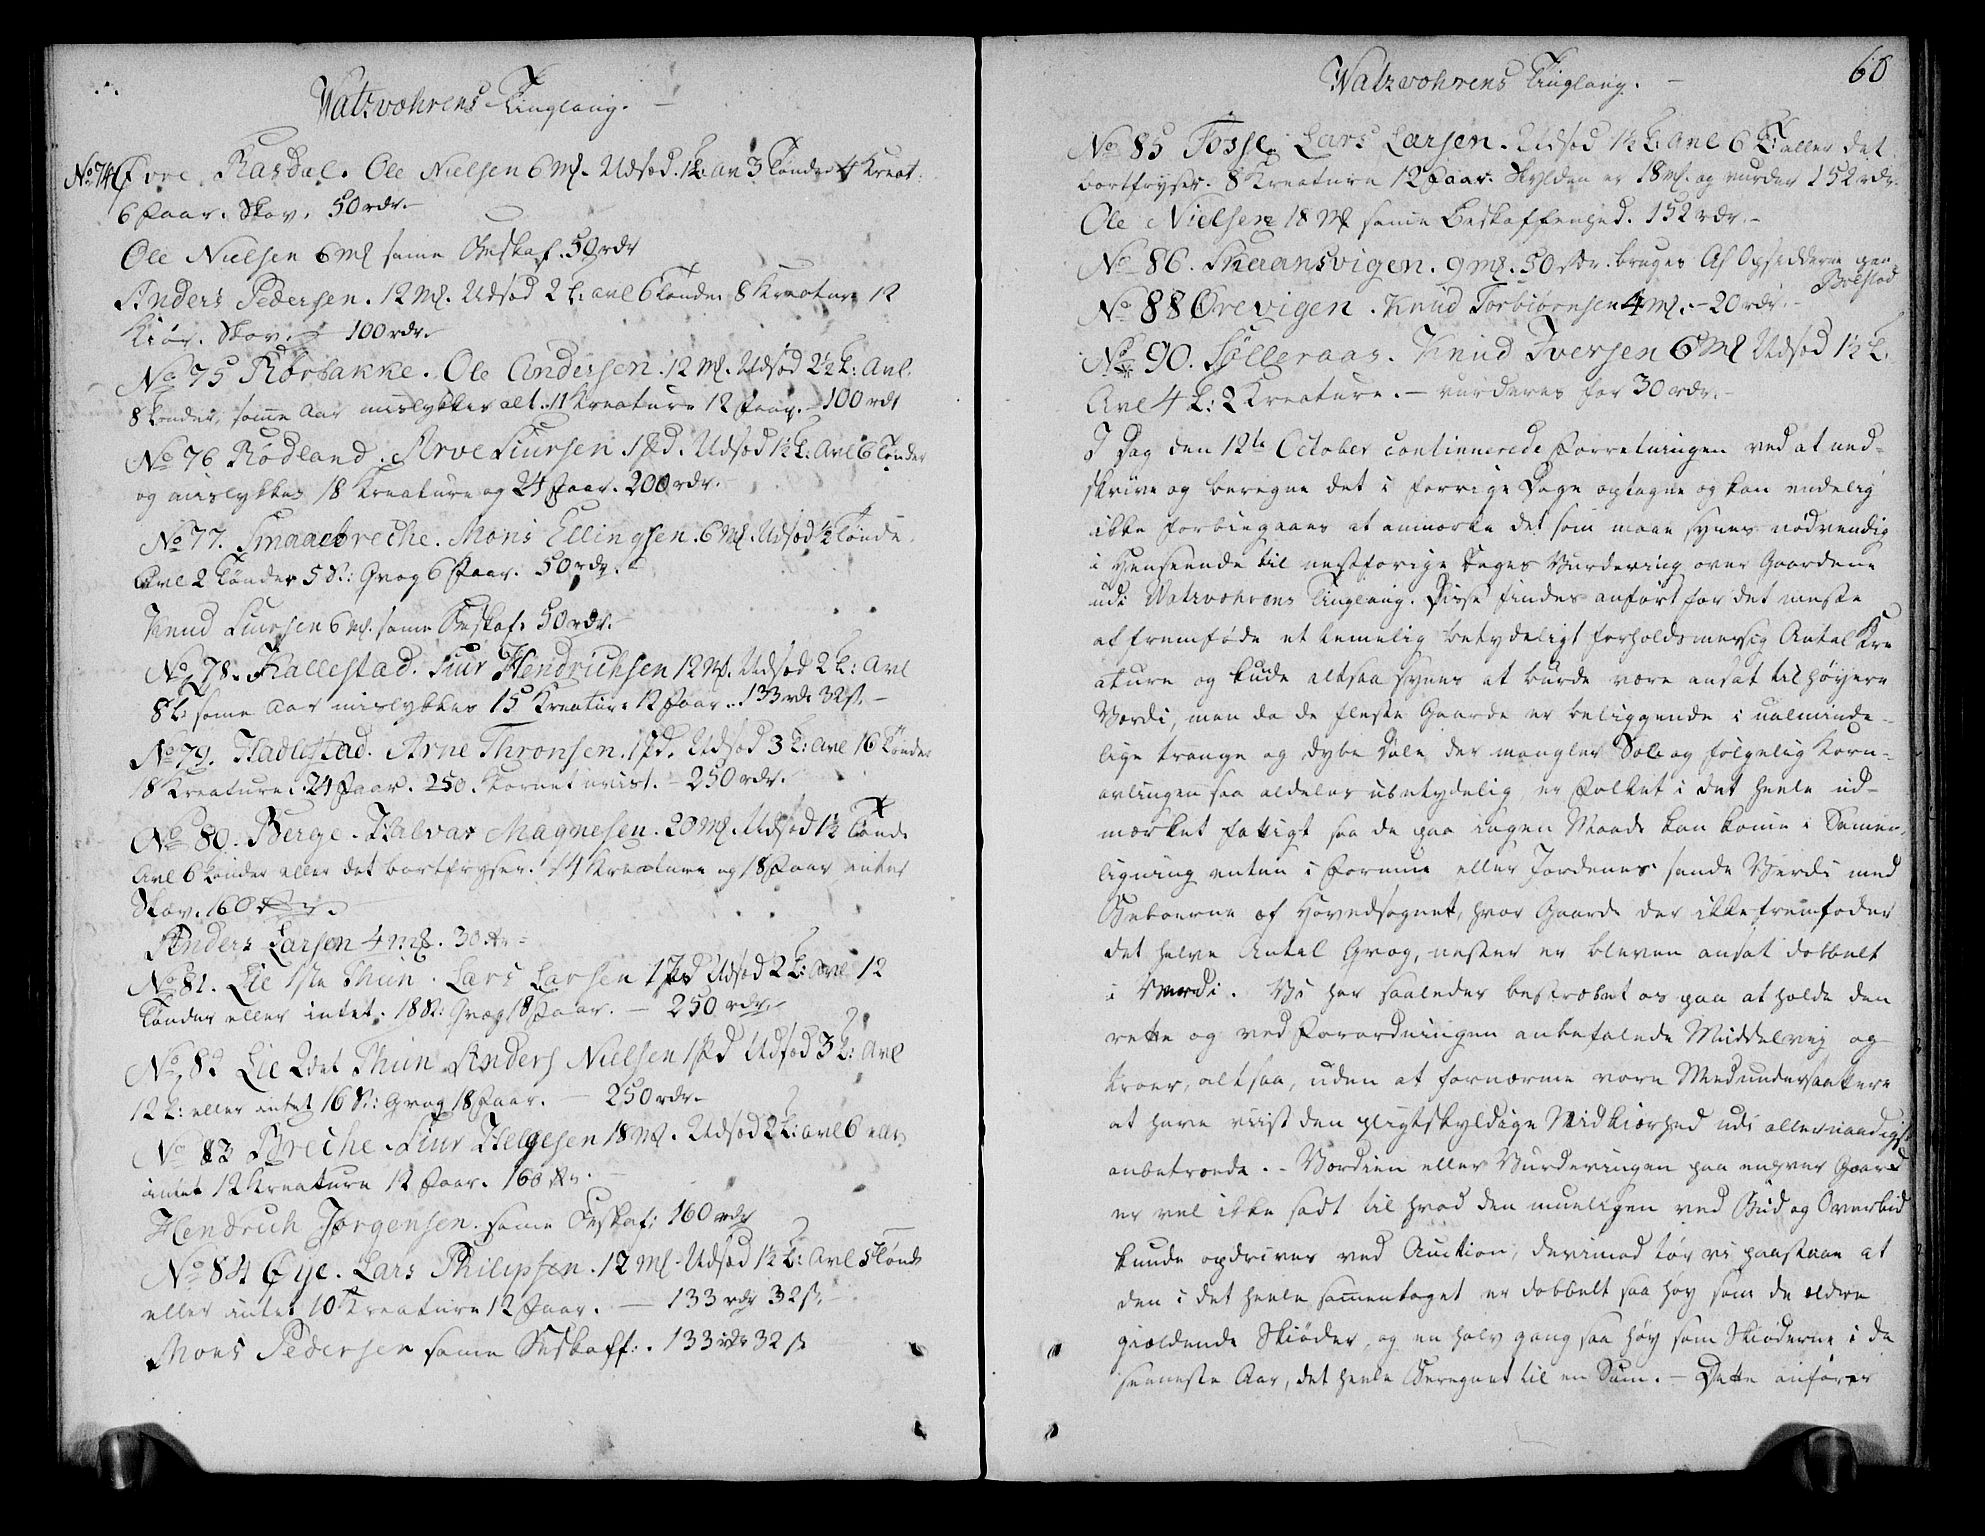 Watzvohrens Tinglaug.
No 74 Øvre Rasdal. Ole Nielsen 6 Ml. Udsæd. 1 t: avl 3 Tønder 4 Kreat:
6 Faar. Skov. 50 rdr.
Ole Nielsen 6 Ml same Beskaf. 50 rdr
Anders Pedersen. 12 Ml. Udsæd 2 t: avl 6 Tønder 8 Kreature 12
Skov. 100 rdr.
No 75 Rørbakke. Ole Andersen. 12 Ml. Udsæd 2½ t: Avl.
8 tønder, some Aar mislykkes alt. 11 Kreature 12 Faar. 100 rdr
No 76 Rødland. Arve Siursen. 1 Pd. Udsæd 1½ t: Avl 6 Tønder
og mislykkes 18 Kreature og 24 Faar. 200 rdr.
No 77. Smaaebreche. Mons Ellingsen. 6 Ml. Udsæd ½ Tønde.
Avl 2 Tønder 5 St: Qvæg 6 Faar. 50 rdr.
Knud Siursen 6 Ml. same Beskaf: 50 rdr.
No 78. Fallestad. Siur Hendrichsen 12 Ml. Udsæd 2 t: Avl
8 t: some Aar mislykkes 15 Kreature 12 Faar. 133 rdr 32 s.
No 79. Hadlestad. Arne Thronsen. 1 Pd. Udsæd 3 t: avl 16 Tønder
18 Kreature. 24 Faar. 250. Kornet uvist. 250 rdr.
No 80. Berge. Halvar Magnesen. 20 Ml. Udsæd 1½ Tønde
Avl 6 tønder eller det bortfryser. 14 Kreature og 18 Faar intet
Skov. 160 rdr.
Anders Larsen 4 Ml. 30 rdr
No 81. Lie 1ste Thun. Lars Larsen 1 Pd Udsæd 2 t: Avl 12
Tønder eller intet. 18 St: Qvæg 18 Faar. 250 rdr.
No 82 Lie 2det Thun Anders Nielsen 1 Pd Udsæd 3 t: Avl
12 t: eller intet 16 St: Qvæg 18 Faar. 250 rdr.
No 83 Breche. Siur Helgesen 18 Ml. Udsæd 2 t: avl 6 eller
intet 12 Kreature 12 Faar. 160 rdr.
Hendrich Jørgensen. same Beskaf: 160 rdr
No 84 Øye. Lars Philipsen. 12 Ml. Udsæd 1½ t: Avl 5 tønder
eller intet 10 Kreature 12 Faar. 133 rdr 32 s.
Mons Pedersen same Beskaff:. 133 rdr 32 s
Watzvohrens Tinglaug. 60
No 85 Fosse. Lars Larsen. Udsæd 1½ t: avl 6 t: eller det
bortfryser. 8 Kreature 12 Faar. Skylden er 18 Ml. og vurder 152 rdr.
Ole Nielsen 18 Ml same Beskaffenhed. 152 rdr.
No 86. Skaansvigen. 9 Ml. 50 rdr. bruges af Opsidderne paa
Bolstad
No 88 Ørevigen. Knud Torbiørnsen 4 Ml. 20 rdr.
No 90. Sølleraas. Knud Iversen 6 Ml Udsæd 1½ t.
Avl 4 t: 2 Kreature. – vurderes for 30 rdr.
I Dag den 12te October continuerede Forretningen ved at ned-
skrive og beregne det i forrige Dage optagne og kan endelig
ikke forbiegaaes at anmærke det som maae synes nødvendig
i Henseende til nestforige Dages Vurdering over Gaardene
udi Watzvohrens Tinglaug. Disse findes anført for det meste
at fremføde et temelig betydeligt forholdsmessig Antal Kre
ature og kude altsaa synes at burde være ansat til høyere
Værdi, men da de fleste Gaarde er beliggende i ualminde-
lige trange og dybe Dale der mangler Sol og følgelig Korn-
avlingen saa aldeles ubetydelig, er Folket i det heele ud-
mærket fattigt saa de paa ingen Maade kan kome i Samen-
ligning enten i Formue eller Jordenes sande Værdi med
Beboerne af Hovedsognet, hvor Gaarde der ikke fremføder
det halve Antal Qvæg, nesten er bleven ansat dobbelt
i Værdi. Vi har saaledes bestræbet os paa at holde den
rette og ved Forordningen anbefalede Middelvej og
troer, altsaa, uden at fornærme vore Medundersaattere
at have viist den pligtskyldige Nidkiærhed udi allernaadigst
anbetroede. – Værdien eller Vurderingen paa enhver Gaard
er vel ikke sadt til hvad den mueligen ved Bud og Overbud
kunde opdrives ved Auction, derimod tør vi paastaae at
den i det heele samentaget er dobbelt saa høy som de ældre
gieldende Skiøder, og en halv gang saa høy som Skiøderne i de
seeneste Aar, det heele beregnet til en Sum. – Dette anfører